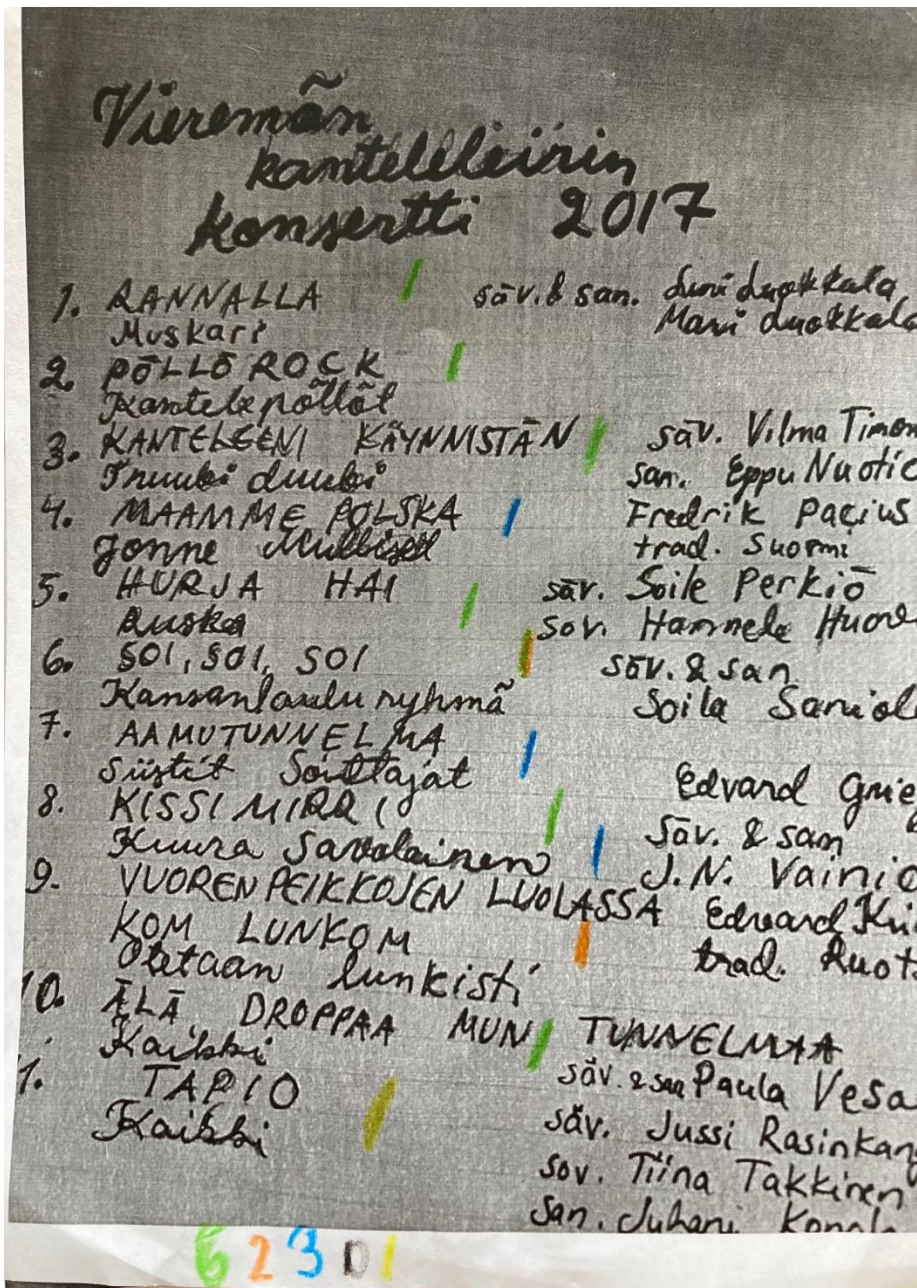 Vieremän
kanteleleirin
konsertti 2017
1. RANNALLA säv. & san.
Muskari Mari Luokkala
2. PÖLLÖ ROCK
Kantelepöllöt
3. KANTELEENI KÄYNNISTÄN säv. Vilma Timon
Truubi duubi san. Eppu Nuotio
4. MAAMME POLSKA Fredrik Pacius
Jonne trad. Suomi
5. HURJA HAI säv. Soile Perkiö
Ruska sov. Hannele Huov
6. SOI, SOI, SOI säv. & san
Kansanlauluryhmä Soila Sariol
7. AAMUTUNNELMA
Siistit Soittajat Edvard Grie
8. KISSIMIRRI säv. & san
Kuura Savolainen J.N. Vainio
9. VUORENPEIKKOJEN LUOLASSA Edvard
KOM LUNKOM trad. Ruot
Otetaan lunkisti
10. ÄLÄ DROPPAA MUN TUNNELMAA
Kaikki säv. & san Paula Vesa
1. TAPIO säv. Jussi Rasinkan
Kaikki sov. Tiina Takkinen
san. Juhani
6 2 3 0 1